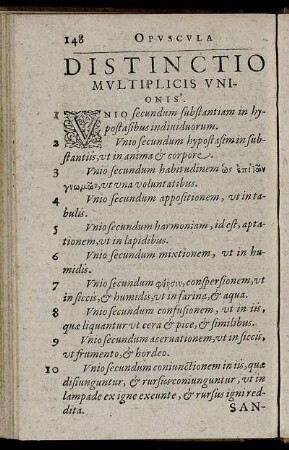 148 OPVSCVLA
DISTINCTIO
MVLTIPLICIS VNI-
ONIS.
1 VNIO secundum substantiam in hy-
postasibus indiuiduorum.
2 Vnio secundum hypostasim in sub-
stantiis, vt in anima & corpore.
3 Vnio secundum habitudinem ὡς ἐπὶ τῶν
γνωμῶν, vt vna voluntatibus.
4 Vnio secundum appositionem, vt in ta-
bulis.
5 Vnio secundum harmoniam, id est, apta-
tionem, vt in lapidibus.
6 Vnio secundum mixtionem, vt in hu-
midis.
7 Vnio secundum φύρσιν, conspersionem, vt
in siccis, & humidis, vt in farina, & aqua.
8 Vnio secundum confusionem, vt in iis,
quæ liquantur vt cera & pice, & similibus.
9 Vnio secundum aceruationem, vt in siccis,
vt frumento, & hordeo.
10 Vnio secundum coniunctionem in iis, quæ
disiunguntur, & rursus coniunguntur, vt in
lampade ex igne exeunte, & rursus igni red-
dita.
SAN-